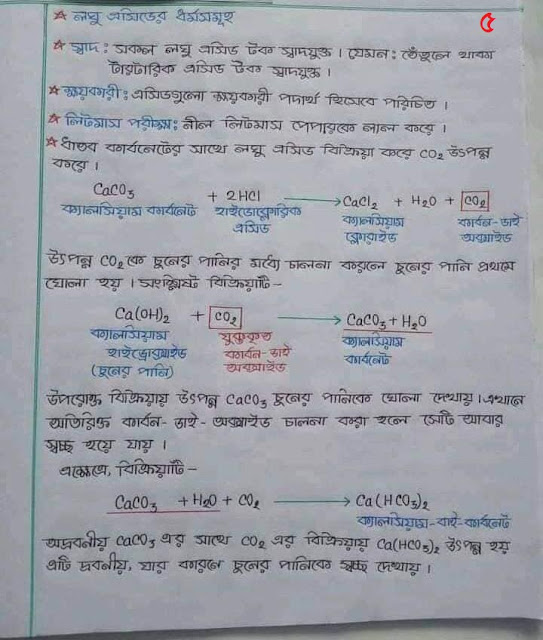 ৫
★ লঘু এসিডের ধর্মসমূহ
★ স্বাদ : সকল লঘু এসিড টক স্বাদযুক্ত । যেমন : তেঁতুলে থাকা
টারটারিক এসিড টক স্বাদযুক্ত ।
★ ক্ষয়কারী : এসিডগুলো ক্ষয়কারী পদার্থ হিসেবে পরিচিত ।
★ লিটমাস পরীক্ষা : নীল লিটমাস পেপারকে লাল করে ।
★ ধাতব কার্বনেটের সাথে লঘু এসিড বিক্রিয়া করে CO₂ উৎপন্ন
করে ।
CaCO₃ + 2HCl ⟶ CaCl₂ + H₂O + CO₂
ক্যালসিয়াম কার্বনেট হাইড্রোক্লোরিক ক্যালসিয়াম কার্বন-ডাই
এসিড ক্লোরাইড অক্সাইড
উৎপন্ন CO₂ কে চুনের পানির মধ্যে চালনা করলে চুনের পানি প্রথমে
ঘোলা হয় । সংশ্লিষ্ট বিক্রিয়াটি -
Ca(OH)₂ + CO₂ ⟶ CaCO₃ + H₂O
ক্যালসিয়াম যুক্তকৃত ক্যালসিয়াম
হাইড্রোক্সাইড কার্বন-ডাই কার্বনেট
(চুনের পানি) অক্সাইড
উপরোক্ত বিক্রিয়ায় উৎপন্ন CaCO₃ চুনের পানিকে ঘোলা দেখায় । এখানে
অতিরিক্ত কার্বন-ডাই-অক্সাইড চালনা করা হলে সেটি আবার
স্বচ্ছ হয়ে যায় ।
এক্ষেত্রে, বিক্রিয়াটি -
CaCO₃ + H₂O + CO₂ ⟶ Ca(HCO₃)₂
ক্যালসিয়াম-বাই-কার্বনেট
অদ্রবনীয় CaCO₃ এর সাথে CO₂ এর বিক্রিয়ায় Ca(HCO₃)₂ উৎপন্ন হয়
এটি দ্রবনীয়, যার কারনে চুনের পানিকে স্বচ্ছ দেখায় ।